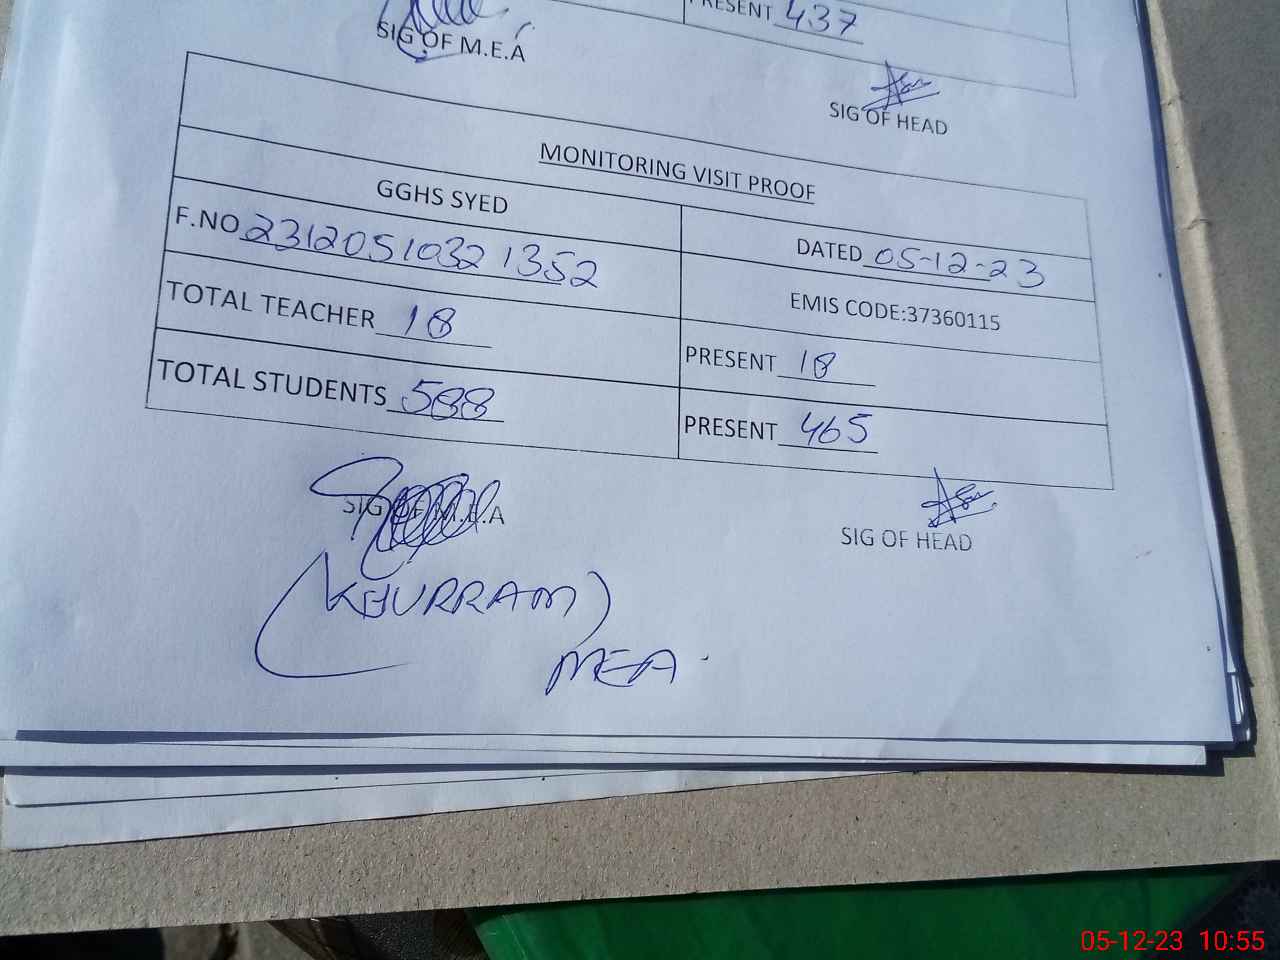 PRESENT 437
SIG OF M.E.A
SIG OF HEAD
MONITORING VISIT PROOF
GGHS SYED
DATED 05-12-23
F.NO 2312051032 1352
EMIS CODE:37360115
TOTAL TEACHER 18
PRESENT 18
TOTAL STUDENTS 588
PRESENT 465
SIG OF M.E.A
SIG OF HEAD
(KHURRAM)
MEA.
05-12-23 10:55